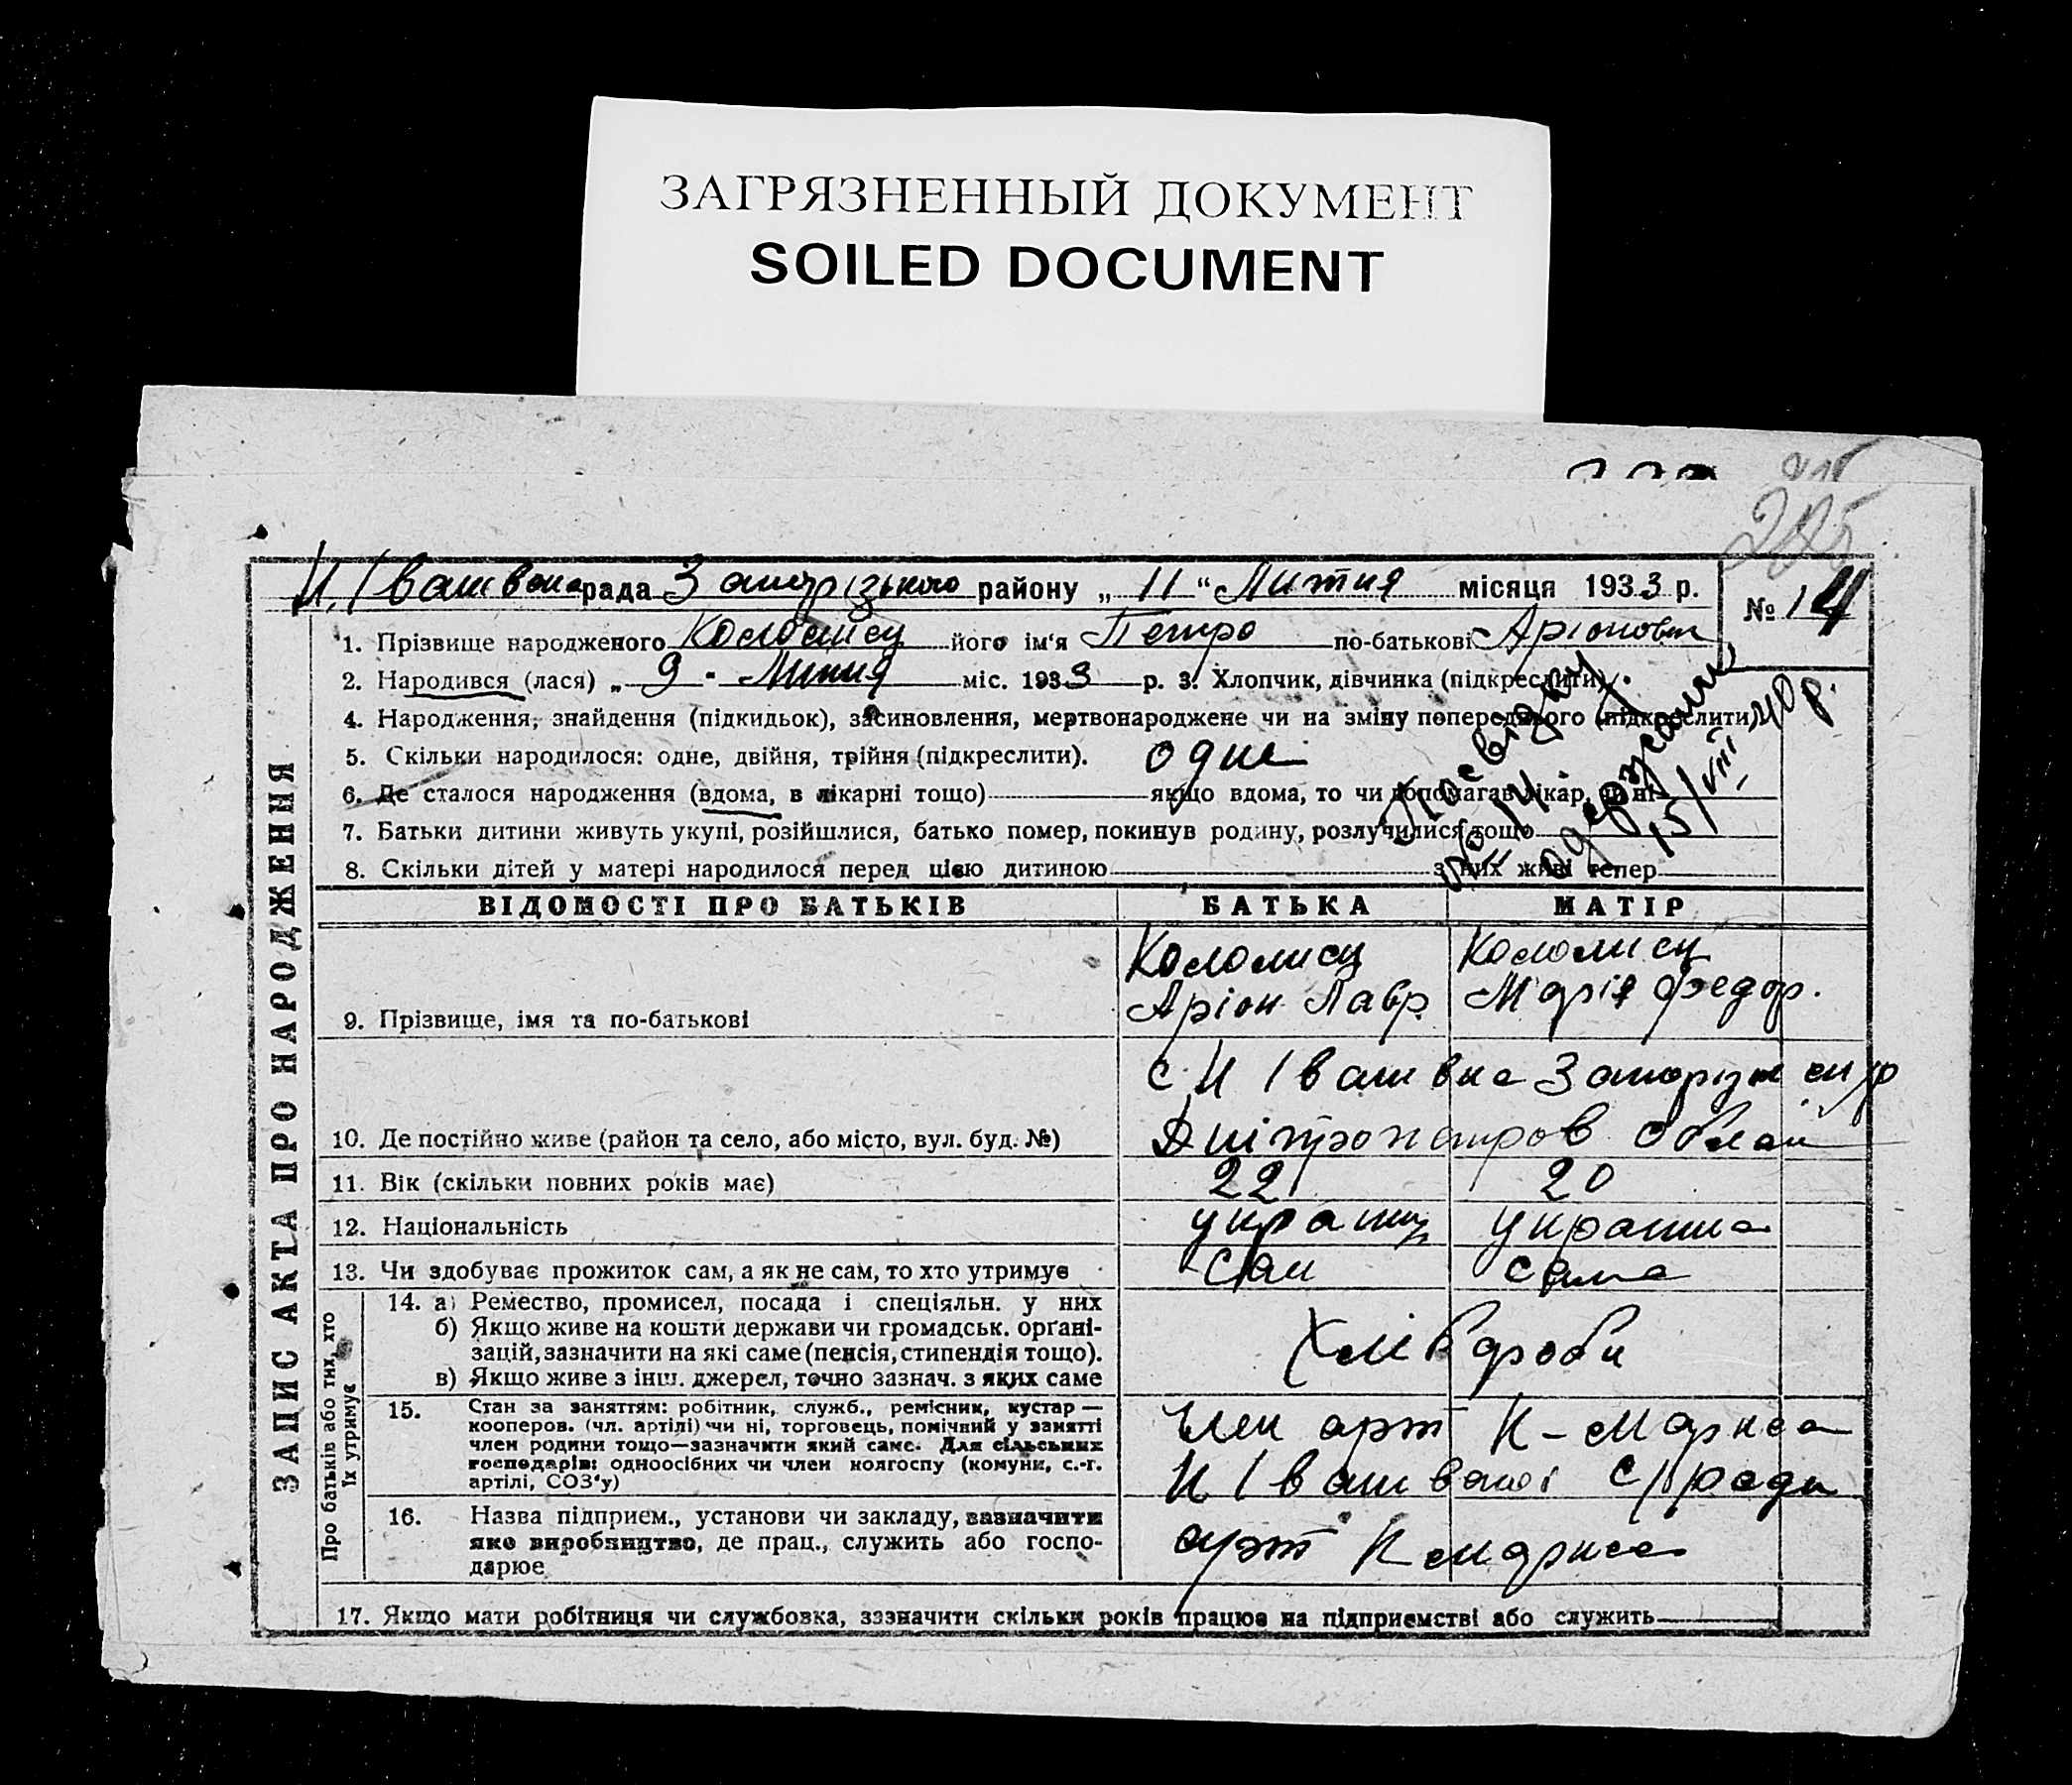 ЗАГРЯЗНЕННЫЙ ДОКУМЕНТ
SOILED DOCUMENT
285
рада Запорізького району „ 11 “ Лютня місяця 1933 р.
№ 14
1. Прізвище народженого Коломиец його ім'я Петро по-батькові Аріонович
2. Народився (лася) „ 9 " міс. 1933 р. 3. Хлопчик, дівчинка (підкреслити).
4. Народження, знайдення (підкидьок), засиновлення, мертвонароджене чи на зміну попереднього (підкреслити)
5. Скільки народилося: одне, двійня, трійня (підкреслити). одне
6. Де сталося народження (вдома, в лікарні тощо) якщо вдома, то чи допомагав лікар, чи ні
7. Батьки дитини живуть укупі, розійшлися, батько помер, покинув родину, розлучилися тощо
8. Скільки дітей у матері народилося перед цією дитиною з них живі тепер
Посвідку
№ 14
одержали
15/VIII 40 р.
ЗАПИС АКТА ПРО НАРОДЖЕННЯ
ВІДОМОСТІ ПРО БАТЬКІВ БАТЬКА МАТІР
9. Прізвище, імя та по-батькові
Коломиец
Аріон Лавр.
Коломиец
Марія Федор.
10. Де постійно живе (район та село, або місто, вул. буд. №)
с. Н Івашвка Запоріжск р
Дніпропетров облас
11. Вік (скільки повних років має) 22 20
12. Національність украінц украинка
13. Чи здобуває прожиток сам, а як не сам, то хто утримує сам сама
Про батьків або тих, хто їх утримує
14. а) Ремество, промисел, посада і спеціяльн. у них
б) Якщо живе на кошти держави чи громадськ. орґані-
зацій, зазначити на які саме (пенсія, стипендія тощо).
в) Якщо живе з інш. джерел, точно зазнач. з яких саме
Хлібороби
15. Стан за заняттям: робітник, служб., ремісник, кустар —
кооперов. (чл. артілі) чи ні, торговець, помічний у занятті
член родини тощо—зазначити який саме. Для сільських
господарів: одноосібних чи член колгоспу (комуни, с.-г.
артілі, СОЗ'у)
член арт К-Маркса
с/ради
16. Назва підприєм., установи чи закладу, зазначити
яке виробництво, де прац., служить або госпо-
дарює
арт К Маркса
17. Якщо мати робітниця чи службовка, зазначити скільки років працює на підприємстві або служить